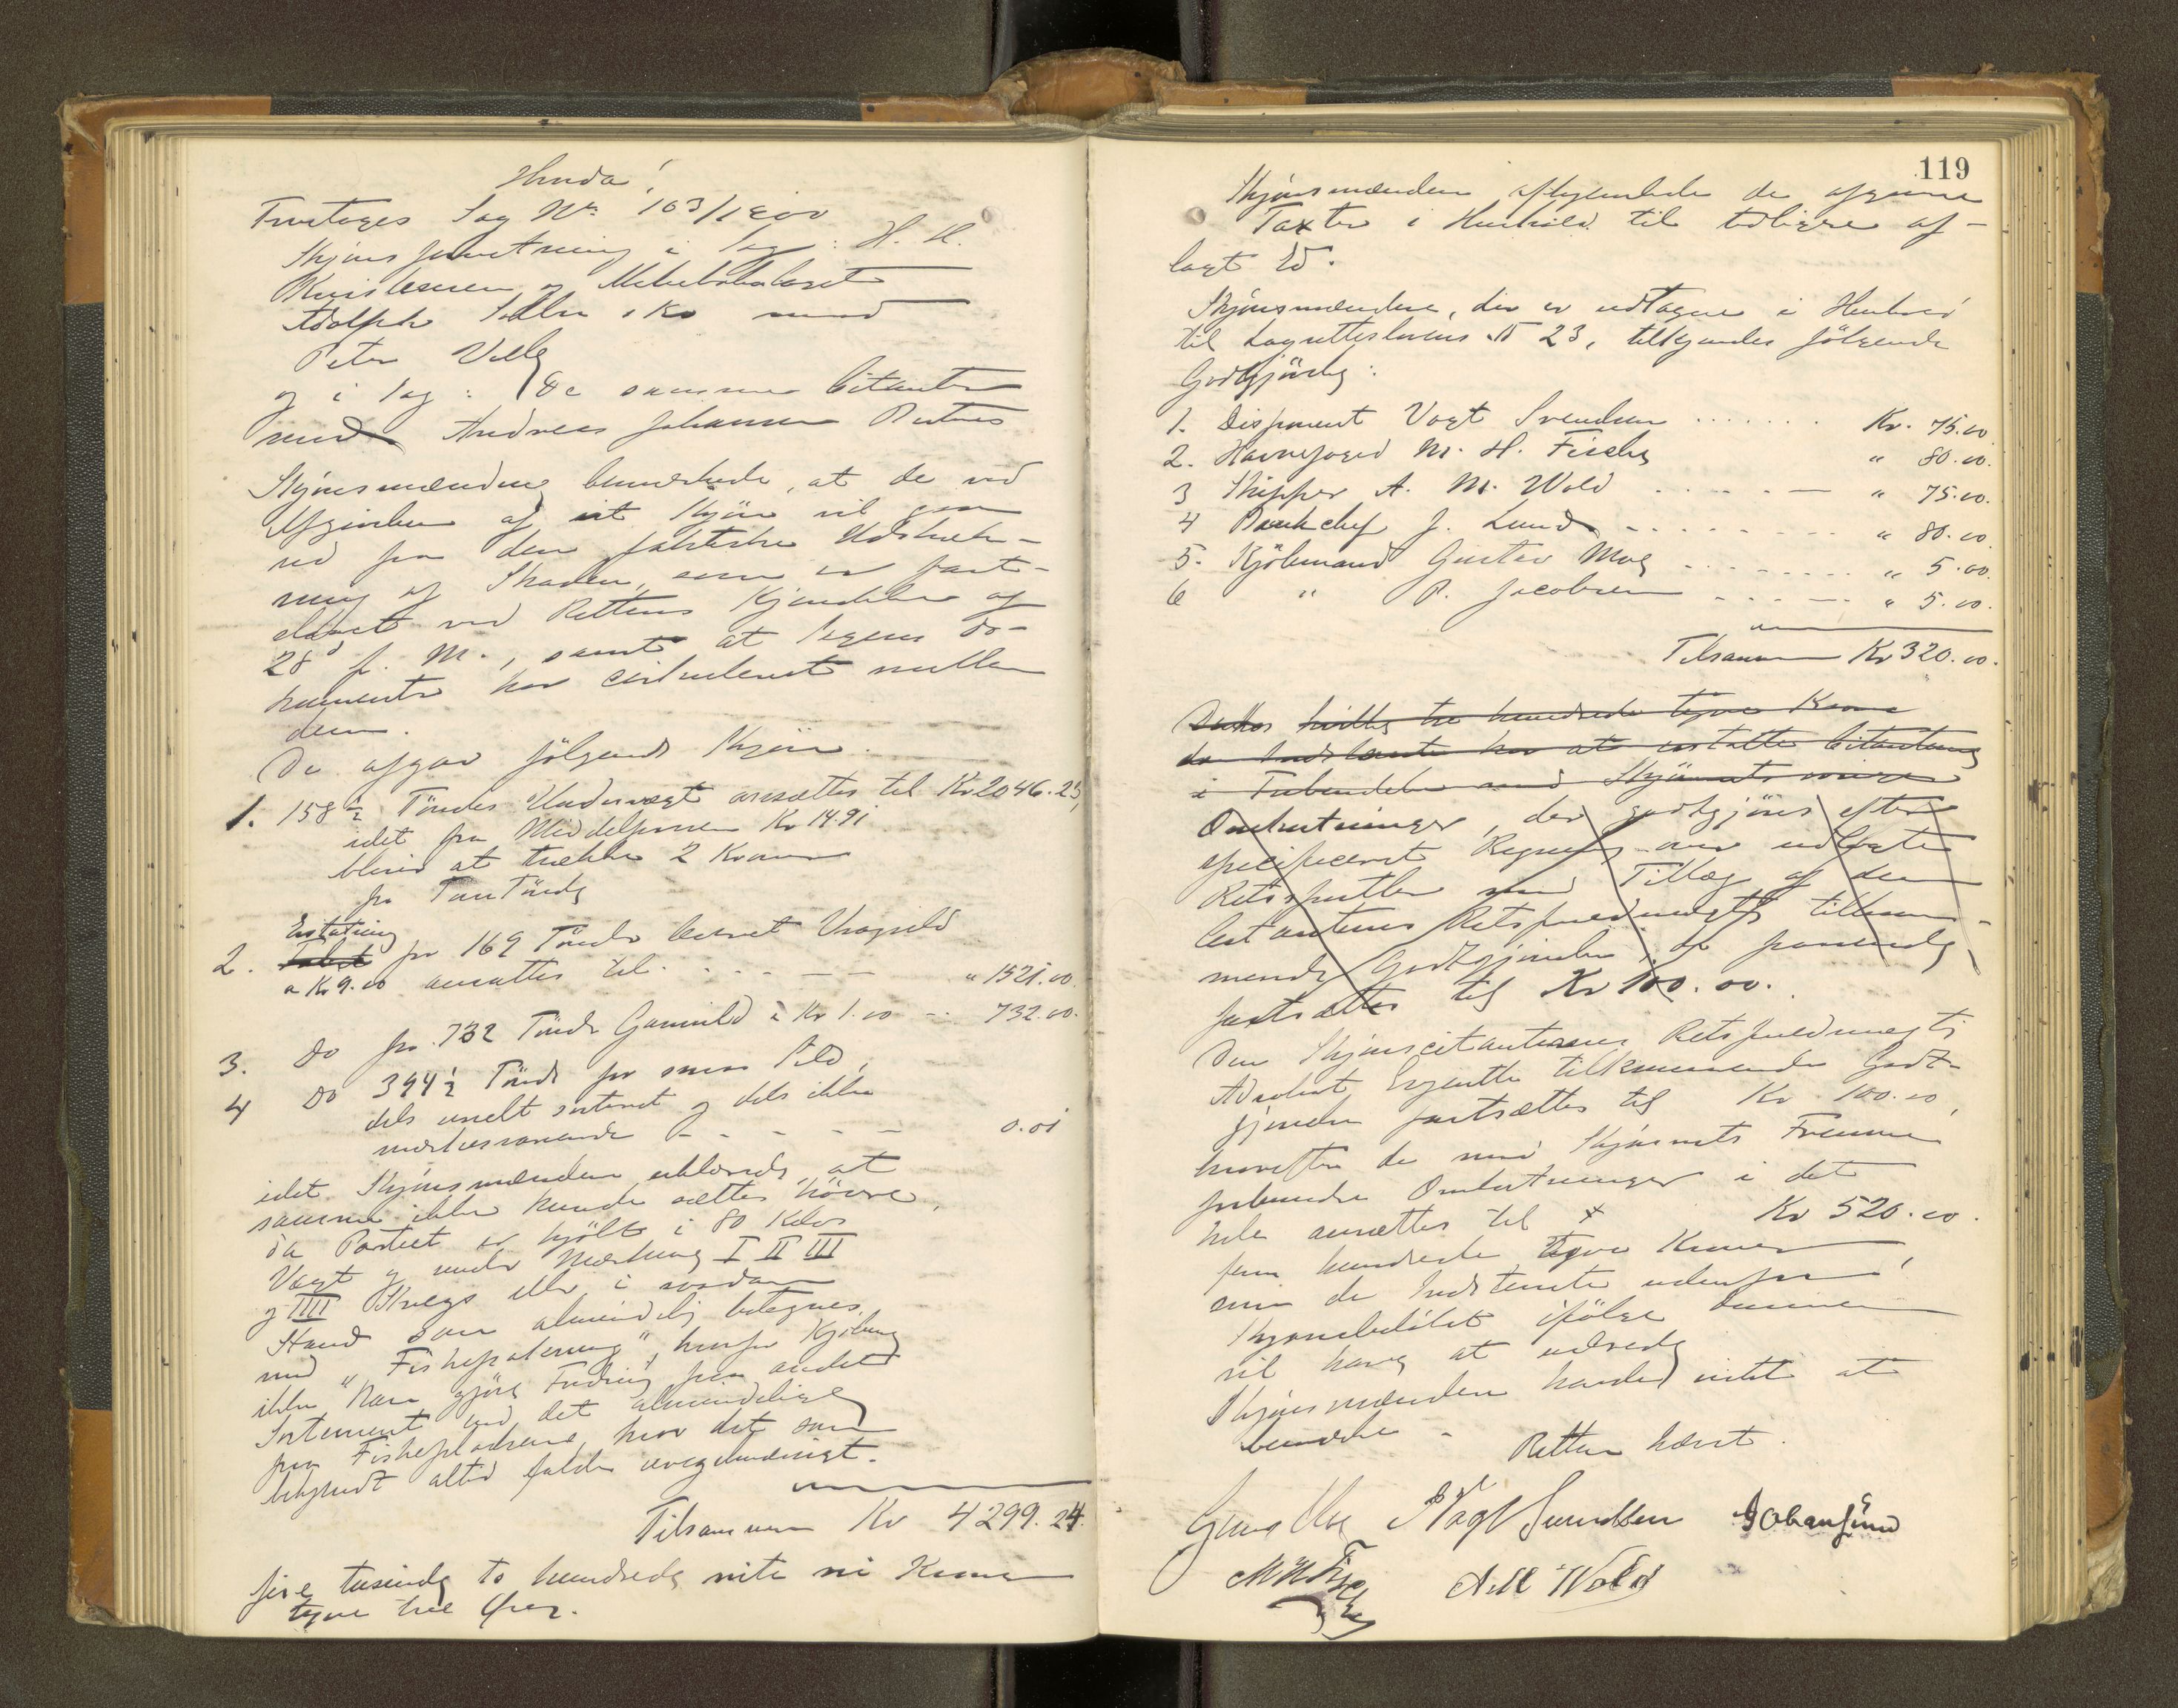 Hvorda!
Foretoges Sag No 163/1900
Skjønsforretning i Sag: H. H.
Kristensen og Aktiebolaget
Adolph & Ko mod
Peter
og i Sag: De samme Citanter
mod Andreas Johansen
Skjønsmændene bemærkede, at de ved
Afgivelsen af sit Skjøn vil gaa
ud fra den faktiske Udstræk-
ning af Skaden, som er fast-
slaaet ved Rettens Kjendelse af
28d f. M., samt at Sagens Do-
kumenter har cirkuleret mellem
dem.
De afgav følgende Skjøn.
1. 158 1/2 Tønder Undervægt ansættes til Kr 2046.23,
idet fra Middelprisen Kr 14.91
bliver at trække 2 Kroner
for Tom Tønde
Erstatning
2. for 169 Tønder Vragsild
a Kr 9.00 ansættes til " 1521.00
3. Do for 732 Tønder Gammelsild à Kr 1.00 - 732.00.
4 Do 394 1/2 Tønde for smaa Sild,
dels uselt sorteret og dels ikke
mærkessvarende 0.01
idet Skjønsmændene erklærede, at
samme ikke kunde sættes høiere,
da Partiet er kjøbt i 80 Kilos
Vægt og under Mærkning I II III
og IIII Stregs eller i saadan
Stand som almindelig betegnes
med "Fiskepakning", hvorfor Kjøberen
ikke kan gjøre Fordring paa andet
Sortement end det almindelige
paa Fiskepladsene, hvor det som
bekjendt altid falder uregelmæssigt.
Tilsammen Kr 4299.24.
fire tusinde to hundrede nitti ni Kroner
tyve fire Øre.
119
Skjønsmændene afhjemlede de afgivne
Taxter i Henhold til tidligere af-
lagt Ed.
Skjønsmændene, der er udtagne i Henhold
til Lagretteslovens § 23, tilkjendes følgende
Godtgjørelse:
1. Disponent Vogt Svendsen ....... Kr. 75.00
2. Havnefoged M. H. Fischer " 80.00.
3 Skipper A. M. Wold ..... — " 75.00.
4 Bankchef J. Lund - ...... " 80.00
5. Kjøbmand Gustav Moe ........ " 5.00.
6 " P. Jacobsen ..... " 5.00.
Tilsammen Kr 320.00.
hvilke tre hundrede tyve Kroner
de Indstevnte har at erstatte Citanterne
i Forbindelse med Skjønnets øvrige
Omkostninger, der godtgjøres efter
specificeret Regning over udlagte
Retsgebyr med Tillæg af den
Citanternes Retsfuldmægtig tilkom-
mende Godtgjørelse, der passende
fastsættes til Kr 100.00.
Den Skjønscitanternes Retsfuldmægtig
Advokat tilkommende Godt-
gjørelse fastsættes til Kr 100.00,
hvorefter de med Skjønnets Fremme
forbundne Omkostninger i det
hele ansættes til × Kr 520.00.
fem hundrede tyve Kroner,
som de Indstevnte udenfor
Skjønsbeløbet ifølge denne
vil have at udrede
Skjønsmændene havde intet at
bemærke - Retten hævet.
Gustav Moe Vogt Svendsen Johan Lund
M H Fischer A M Wold